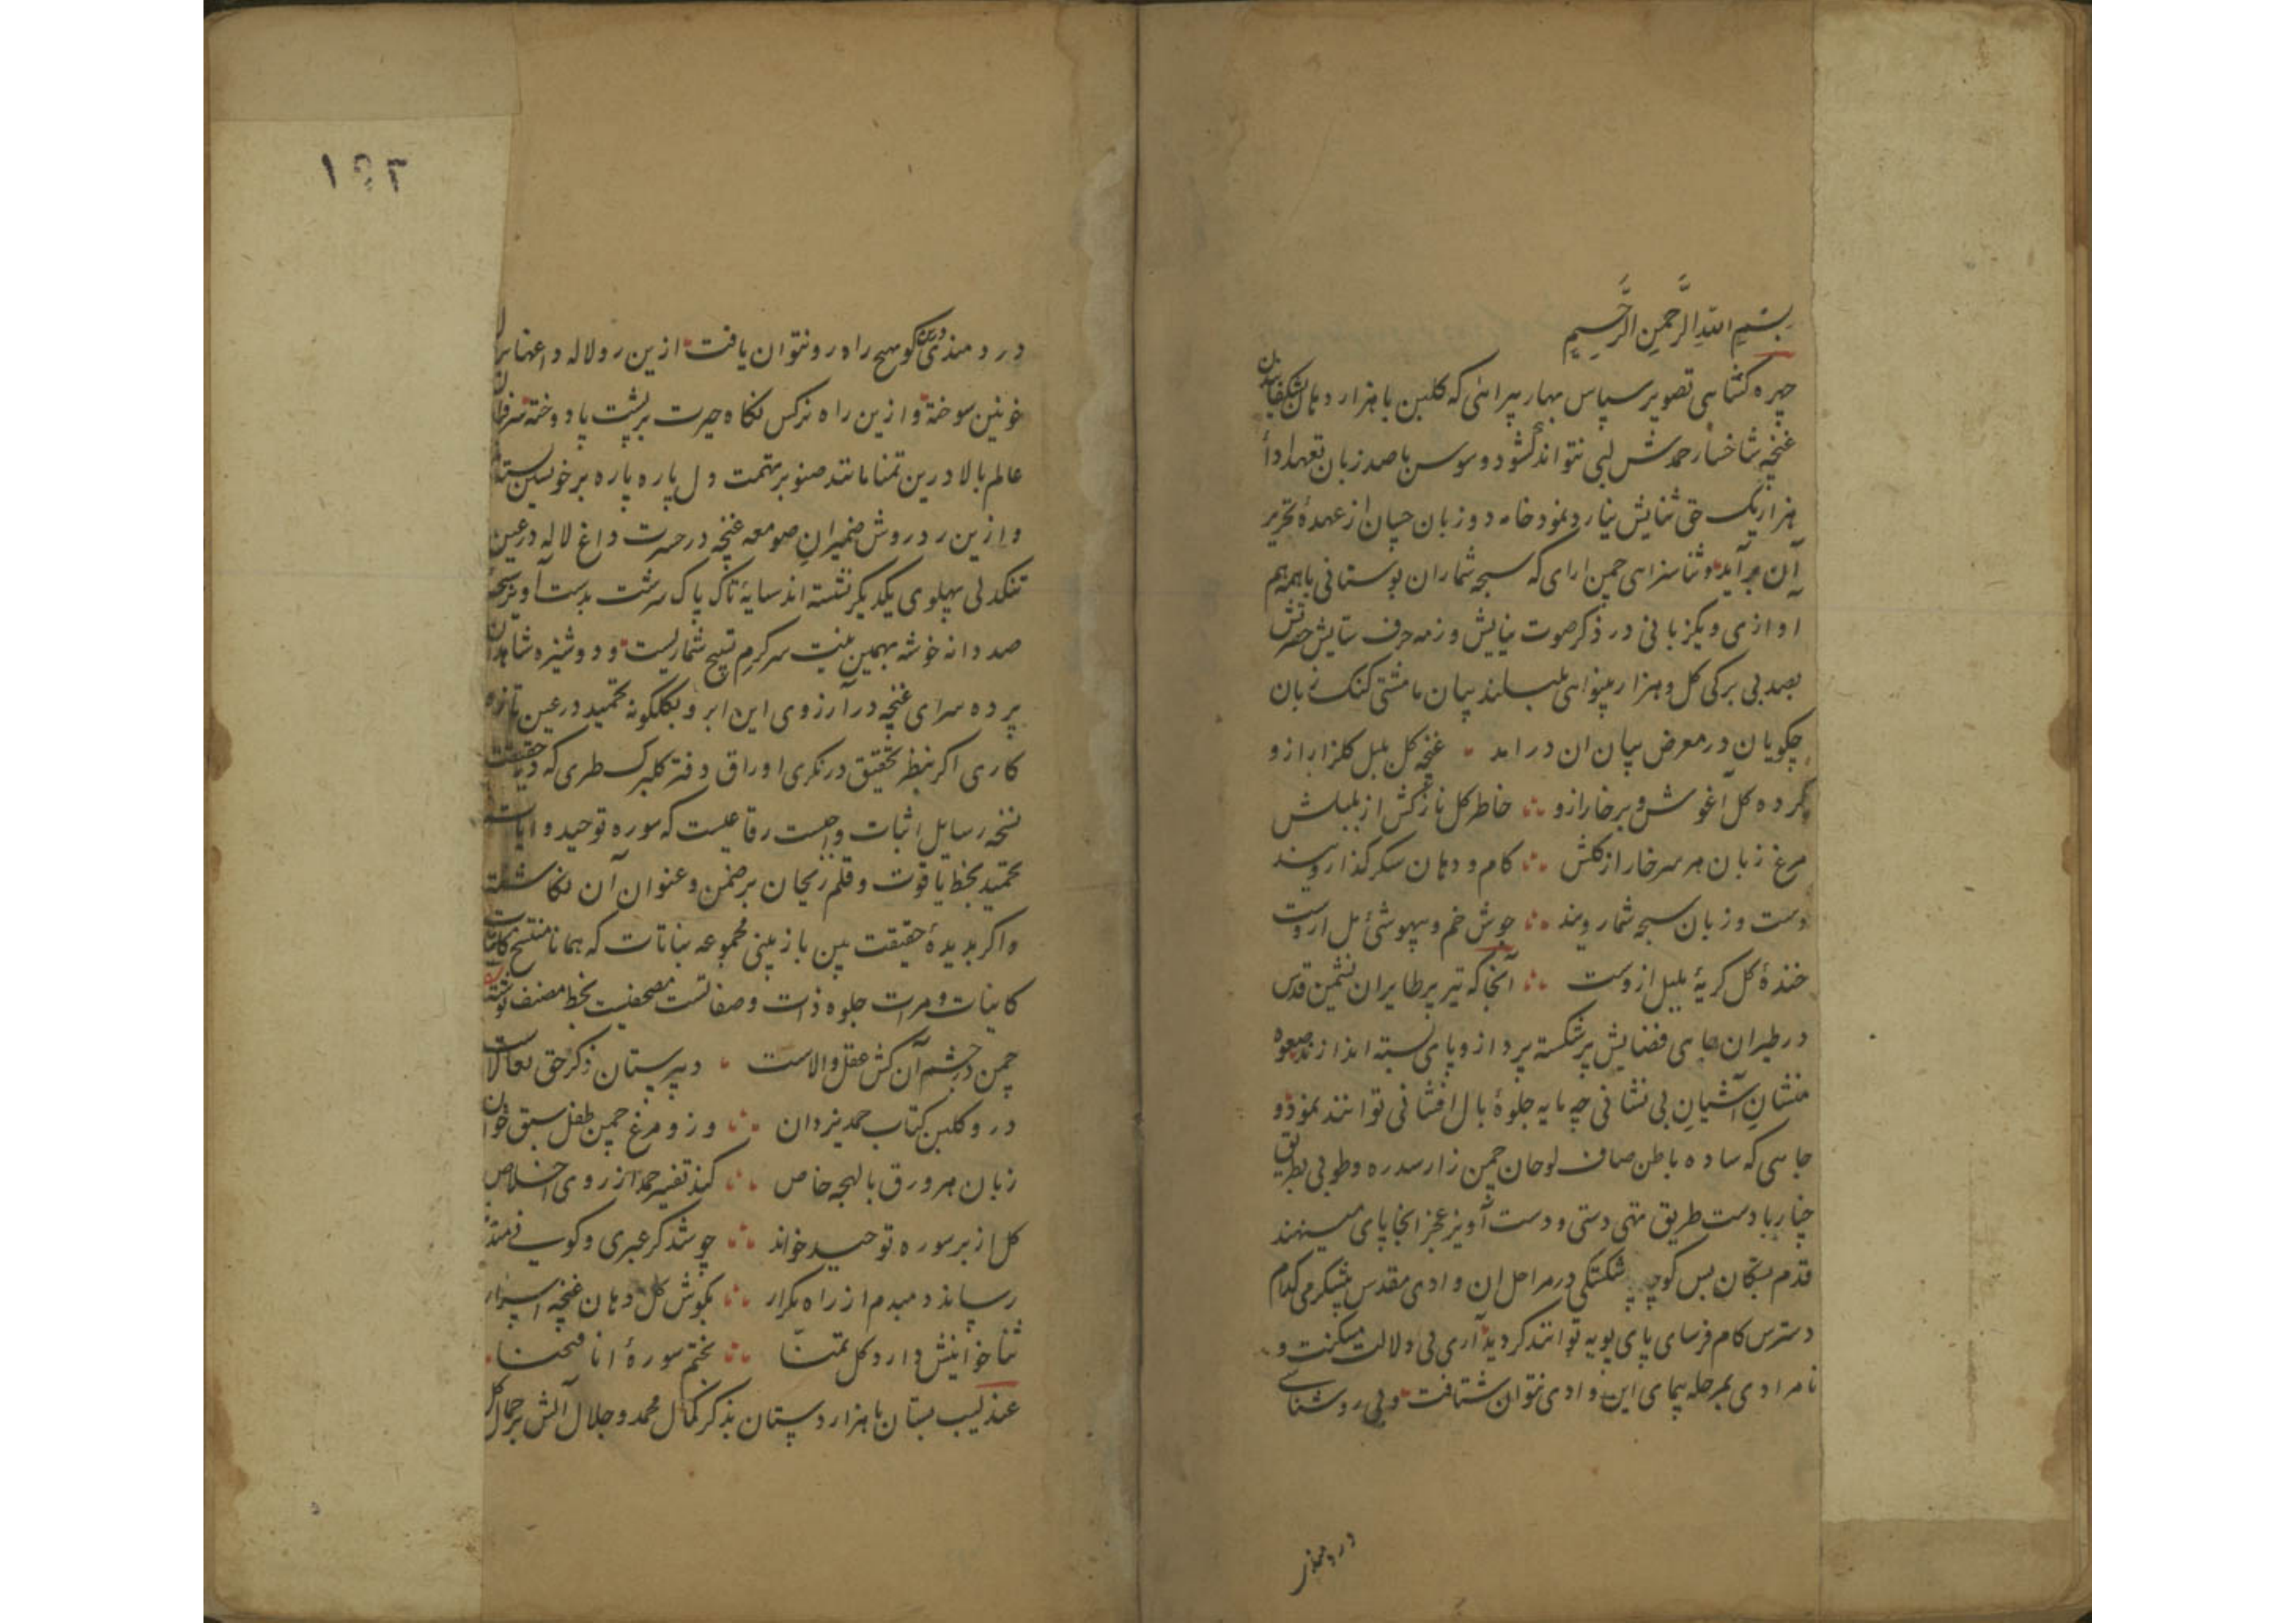 بسم الله الرحمن الرحیم
چهره کشایی تصویر سپاس بهار پیرائی که کلبن با هزار دهان شکفاندن
غنچه شاخسار حمدش لبی نتواند کشود و سوسن با صد زبان تعهد ادأ
هزار یک حق ثنایش نیارد نمود خامه دو زبان چسان از عهدهٔ تحریر
آن برآید و ثنا سزای چمن ارای که سبحه شماران بوستانی با همه هم
اوازی و یکزبانی در ذکر صوت نیایش و زمزمه حرف ستایش حضرتش
بصد بی برکی کل و هزار بینوایی بلبلند پس ما مشتی کنک زبان
چکویان در معرض بیان ان در امد غنچه کل بلبل کلزار ازو
کرده کل آغوش و بر خار ازو خاطر کل نازکش از بلبلش
مرغ زبان هر سر خار از کلش کام و دهان شکر کذار ویند
دست و زبان سبحه شمار ویند جوش خم و بیهوشئ مل ازوست
خندهٔ کل کریهٔ بلبل ازوست آنجا که تیز پر طایران نشیمن قدس
در طیران فضایش پر شکسته پرداز و پای بسته اند از صعوه
منشان آشیان بی نشانی چه مایه جلوهٔ بال افشانی توانند نمود و
جایی که ساده باطن صاف لوحان چمن زار سدره و طوبی بطریق
چنار با دست طریق تهی دستی و دست آویز عجز انجا پای مینهند
قدم بستکان پس کوچه شکستکی در مراحل ان وادی مقدس بکدام
دسترس کام فرسای پای پویه توانند کردید آری بی دلالت مسکنت و
نامرادی بمرحله پیمای این وادی نتوان شتافت و بی روشنای
دردمند
۱۹۲
دردمندی کوهیچ راه رو نتوان یافت ازین رو لاله داغها بر
خونین سوخته و ازین راه نرکس نکاه حیرت بر پشت پا دوخته سرفرازان
عالم بالا درین تمنا مانند صنوبر بتهمت دل پاره پاره بر خویشتن بسته
و ازین رد روش ضمیران صومعه غنچه در حسرت داغ لاله در عین
تنکدلی پهلوی یکدیکر نشسته اند سایهٔ تاک پاک سرشت بدست آویز سبحهٔ
صد دانه خوشه بهمین نیت سرکرم تسبیح شماریست و دوشیزه شاهدان
پرده سرای غنچه در آرزوی این ابرو بکلکونه تحمید در عین تازه
کاری اکر بنظر تحقیق درنکری اوراق دفتر کلبرک طری که در حقیقت
نسخه رسایل اثبات واجبست رقاعیست که سوره توحید و ایات
تحمید بخط یاقوت و قلم ریحان بر ضمن و عنوان آن نکاشته
و اکر بدیدهٔ حقیقت بین باز بینی مجموعه نباتات که همانا منتسخ کتاب
کاینات و مرات جلوه ذات و صفاتست مصحفیست بخط مصنف نوشته
چمن در چشم آن کش عقل والاست دبیرستان ذکر حق تعالاست
درو کلبن کتاب حمد یزدان وزو مرغ چمن طفل سبق خوان
زبان هر ورق با لهجه خاص کند تفسیر حمد از روی اخلاص
کل از بر سوره توحید خواند چو شد کر عبری و کوسی نماند
رساند دمبدم از راه تکرار بکوش کل دهان غنچه اسرار
ثنا خوانیش دارد کل تمنا بختم سورهٔ انا فتحنا
عندلیب بستان با هزار دستان بذکر کمال محمد و جلال آلش بر جمال کل